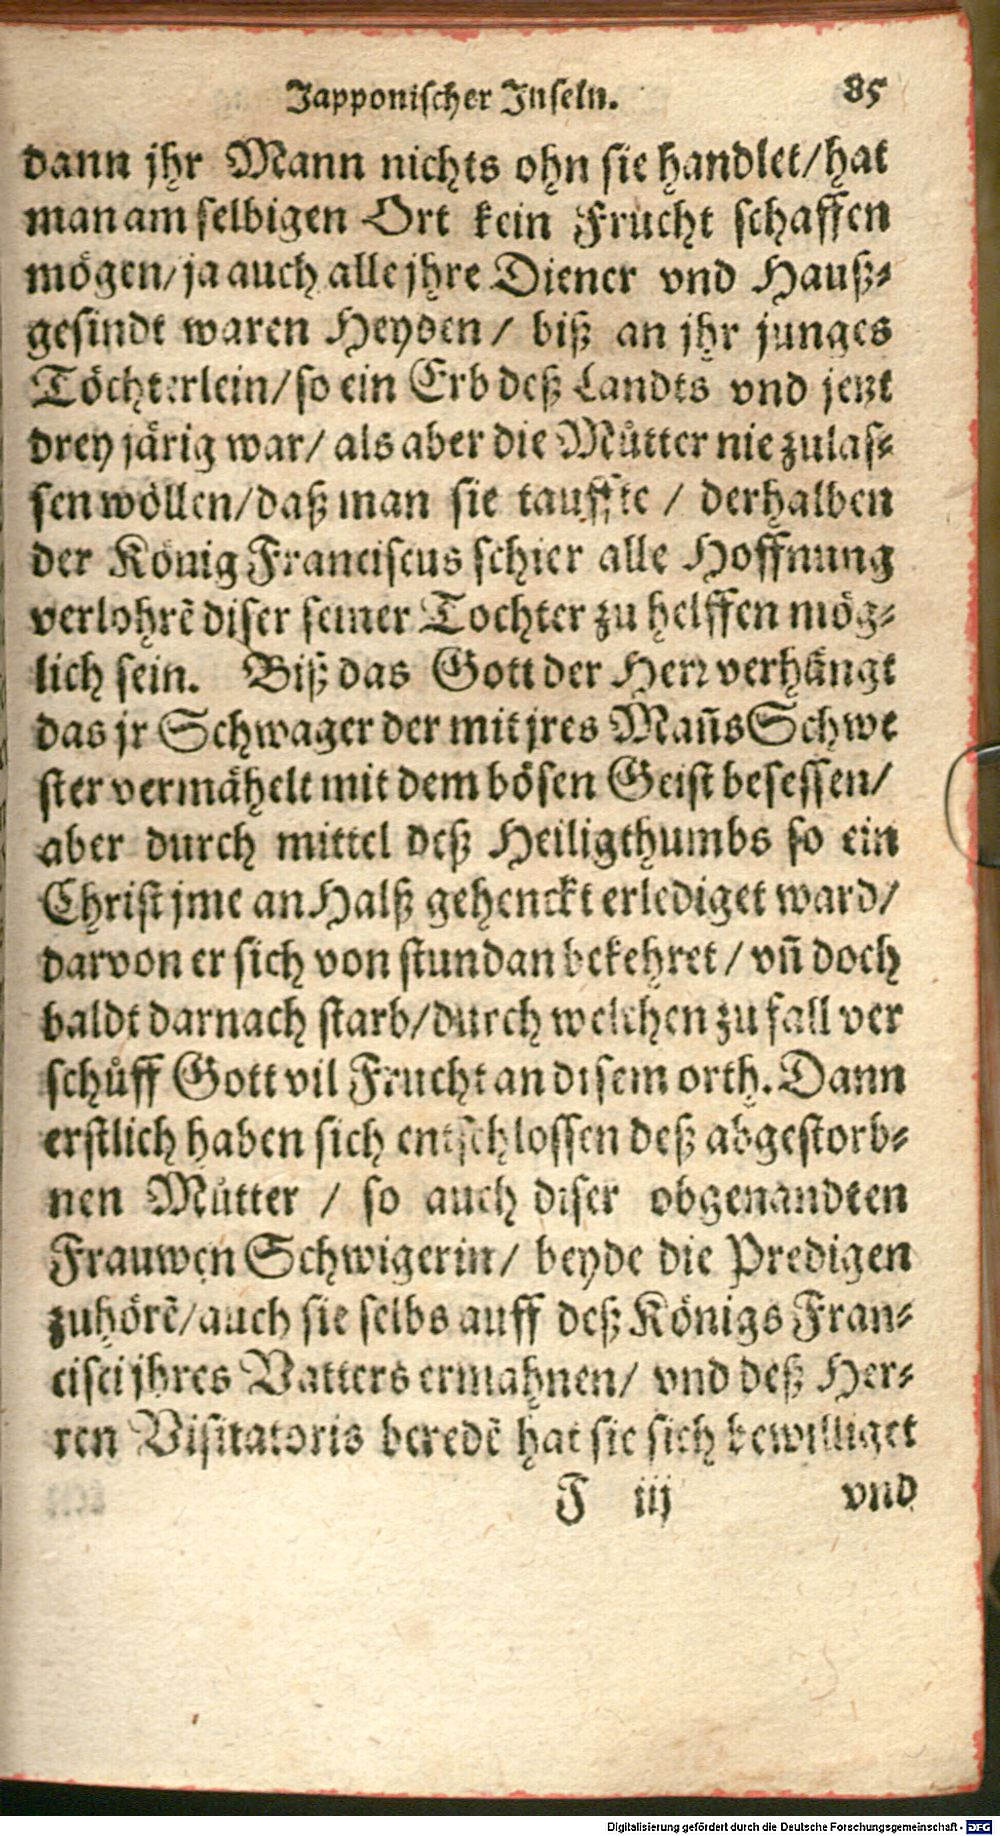 Japponischer Inseln. 85
dann jhr Mann nichts ohn sie handlet/hat
man am selbigen Ort kein Frucht schaffen
mögen/ja auch alle jhre Diener vnd Hauß⸗
gesindt waren Heyden/ biß an jhr junges
Töchterlein/so ein Erb deß Landts vnd jetzt
drey järig war/ als aber die Můtter nie zulas⸗
sen wöllen/daß man sie tauffte / derhalben
der König Franciscus schier alle Hoffnung
verlohrẽ diser seiner Tochter zu helffen mög⸗
lich sein. Biß das Gott der Herr verhängt
das jr Schwager der mit jres Mañs Schwe
ster vermähelt mit dem bösen Geist besessen/
aber durch mittel deß Heiligthumbs so ein
Christ jme an Halß gehenckt erlediget ward/
darvon er sich von stundan bekehret / vñ doch
baldt darnach starb/durch welchen zufall ver
schůff Gott vil Frucht an disem orth. Dann
erstlich haben sich entschlossen deß abgestorb⸗
nen Můtter / so auch diser obgenandten
Frauwen Schwigerin/ beyde die Predigen
zuhörẽ/auch sie selbs auff deß Königs Fran⸗
cisci jhres Vatters ermahnen/ vnd deß Her⸗
ren Visitatoris beredẽ hat sie sich bewilliget
J iij vnd
Digitalisierung gefördert durch die Deutsche Forschungsgemeinschaft - DFG